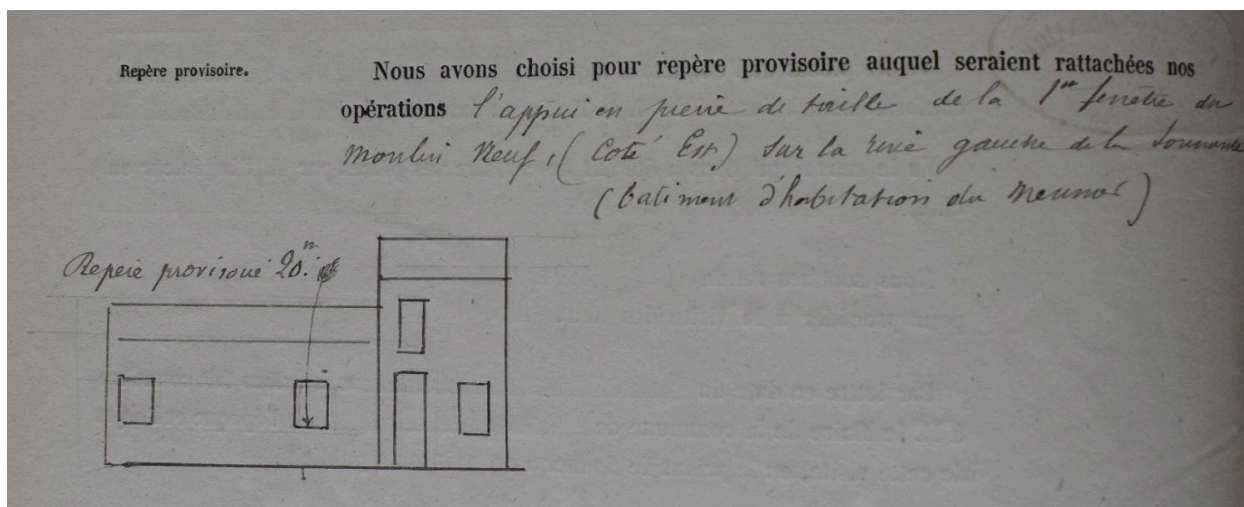 Repère provisoire.
Nous avons choisi pour repère provisoire auquel seraient rattachées nos
opérations l'appui en pierre de taille de la 1re fenêtre du
moulin Neuf, (Coté Est) sur la rive gauche de la
(batiment d'habitation du Meunier)
Repère provisoire 20.m